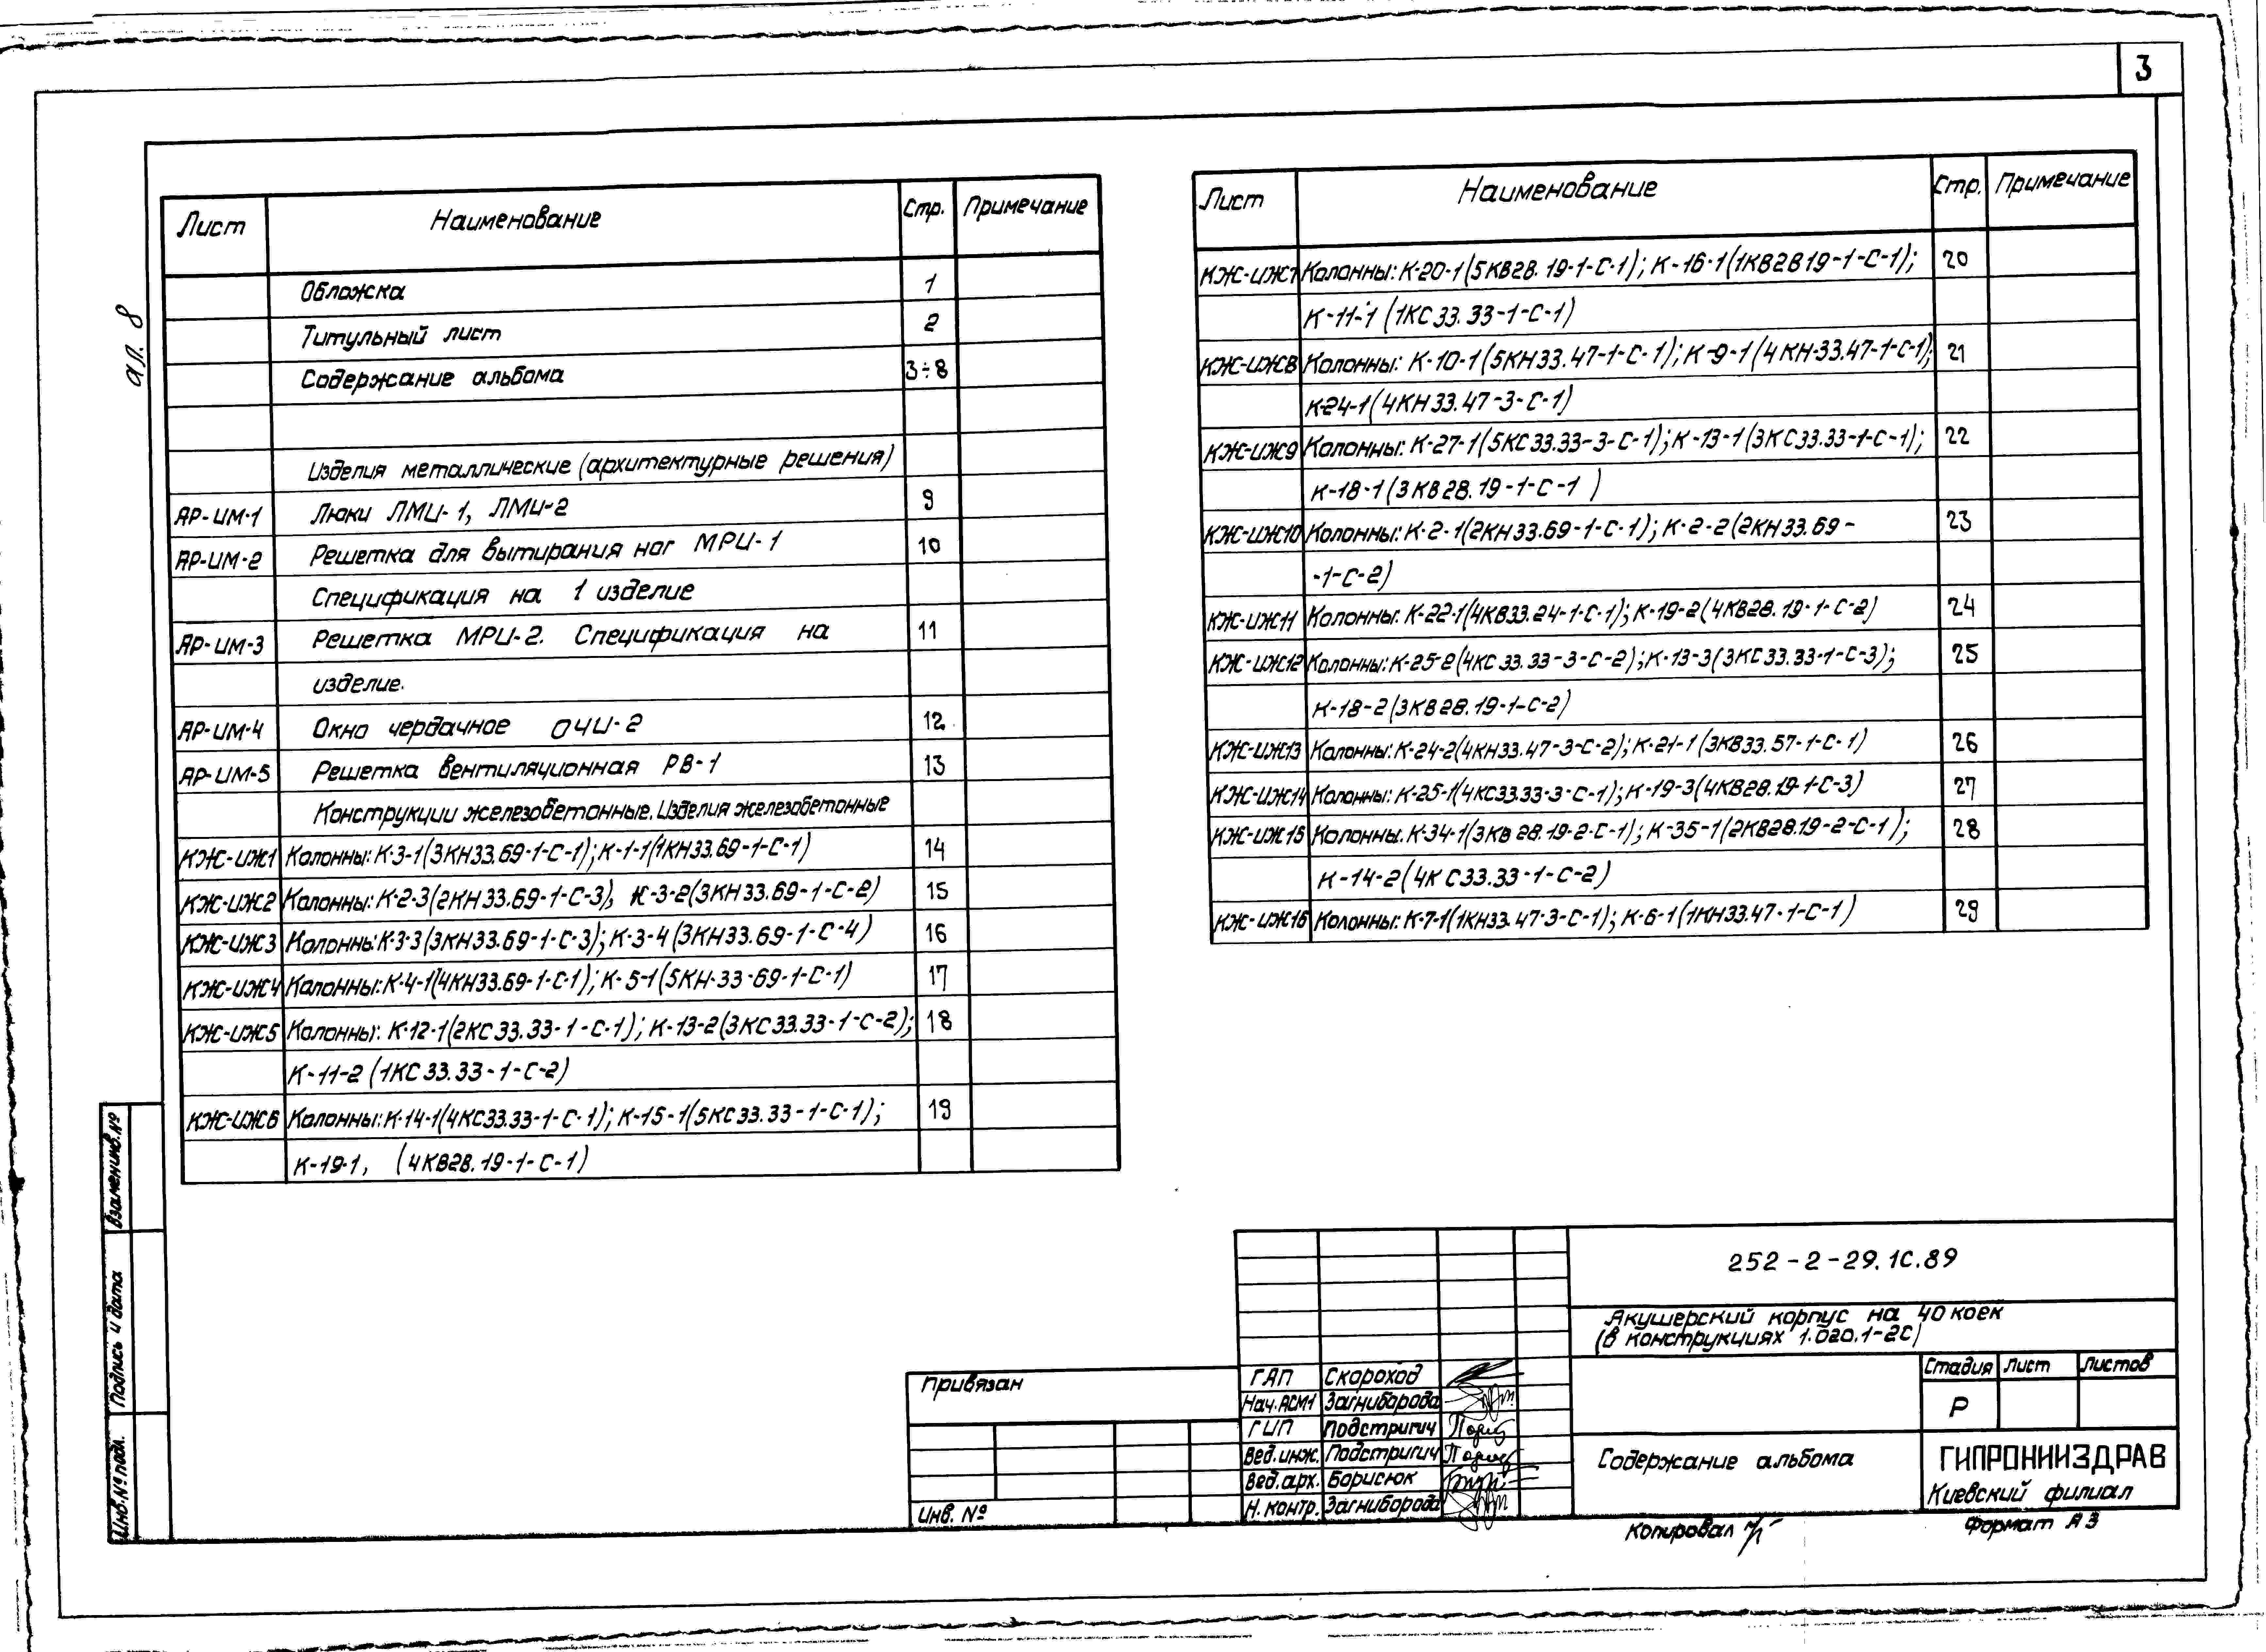 3
ал. 8
Лист Наименование Стр. Примечание
Обложка 1
Титульный лист 2
Содержание альбома 3÷8
Изделия металлические (архитектурные решения)
АР-ИМ-1 Люки ЛМИ-1, ЛМИ-2 9
АР-ИМ-2 Решетка для вытирания ног МРИ-1 10
Спецификация на 1 изделие
АР-ИМ-3 Решетка МРИ-2. Спецификация на 11
изделие.
АР-ИМ-4 Окно чердачное ОЧИ-2 12
АР-ИМ-5 Решетка вентиляционная РВ-1 13
Конструкции железобетонные. Изделия железобетонные
КЖ-ИЖ1 Колонны: К-3-1(3КН33.69-1-С-1); К-1-1(1КН33.69-1-С-1) 14
КЖ-ИЖ2 Колонны: К-2-3(2КН33.69-1-С-3), К-3-2(3КН33.69-1-С-2) 15
КЖ-ИЖ3 Колонны: К-3-3(3КН33.69-1-С-3); К-3-4(3КН33.69-1-С-4) 16
КЖ-ИЖ4 Колонны: К-4-1(4КН33.69-1-С-1); К-5-1(5КН-33-69-1-С-1) 17
КЖ-ИЖ5 Колонны: К-12-1(2КС33.33-1-С-1); К-13-2(3КС33.33-1-С-2); 18
К-11-2(1КС33.33-1-С-2)
КЖ-ИЖ6 Колонны: К-14-1(4КС33.33-1-С-1); К-15-1(5КС33.33-1-С-1); 19
К-19-1, (4КВ28.19-1-С-1)
Лист Наименование Стр. Примечание
КЖ-ИЖ7 Колонны: К-20-1(5КВ28.19-1-С-1); К-16-1(1КВ2819-1-С-1); 20
К-11-1 (1КС33.33-1-С-1)
КЖ-ИЖ8 Колонны: К-10-1(5КН33.47-1-С-1); К-9-1(4КН-33.47-1-С-1); 21
К-24-1(4КН33.47-3-С-1)
КЖ-ИЖ9 Колонны: К-27-1(5КС33.33-3-С-1); К-13-1(3КС33.33-1-С-1); 22
К-18-1(3КВ28.19-1-С-1 )
КЖ-ИЖ10 Колонны: К-2-1(2КН33.69-1-С-1); К-2-2(2КН33.69- 23
-1-С-2)
КЖ-ИЖ11 Колонны: К-22-1(4КВ33.24-1-С-1); К-19-2(4КВ28.19-1-С-2) 24
КЖ-ИЖ12 Колонны: К-25-2(4КС33.33-3-С-2); К-13-3(3КС33.33-1-С-3); 25
К-18-2(3КВ28.19-1-С-2)
КЖ-ИЖ13 Колонны: К-24-2(4КН33.47-3-С-2); К-21-1(3КВ33.57-1-С-1) 26
КЖ-ИЖ14 Колонны: К-25-1(4КС33.33-3-С-1); К-19-3(4КВ28.19-1-С-3) 27
КЖ-ИЖ15 Колонны. К-34-1(3КВ28.19-2-С-1); К-35-1(2КВ28.19-2-С-1); 28
К-14-2(4КС33.33-1-С-2)
КЖ-ИЖ16 Колонны: К-7-1(1КН33.47-3-С-1); К-6-1(1КН33.47-1-С-1) 29
Взамен инв.№
Подпись и дата
Инв.№ подл.
252-2-29.1С.89
Акушерский корпус на 40 коек
(в конструкциях 1.020.1-2С)
Привязан
Инв. №
ГАП Скороход
Нач.АСМ1 Загниборода
ГИП Подстригич
Вед.инж. Подстригич
Вед.арх. Борисюк
Н.контр. Загниборода
Стадия Лист Листов
Р
Содержание альбома
ГИПРОНИИЗДРАВ
Киевский филиал
Копировал
Формат А3